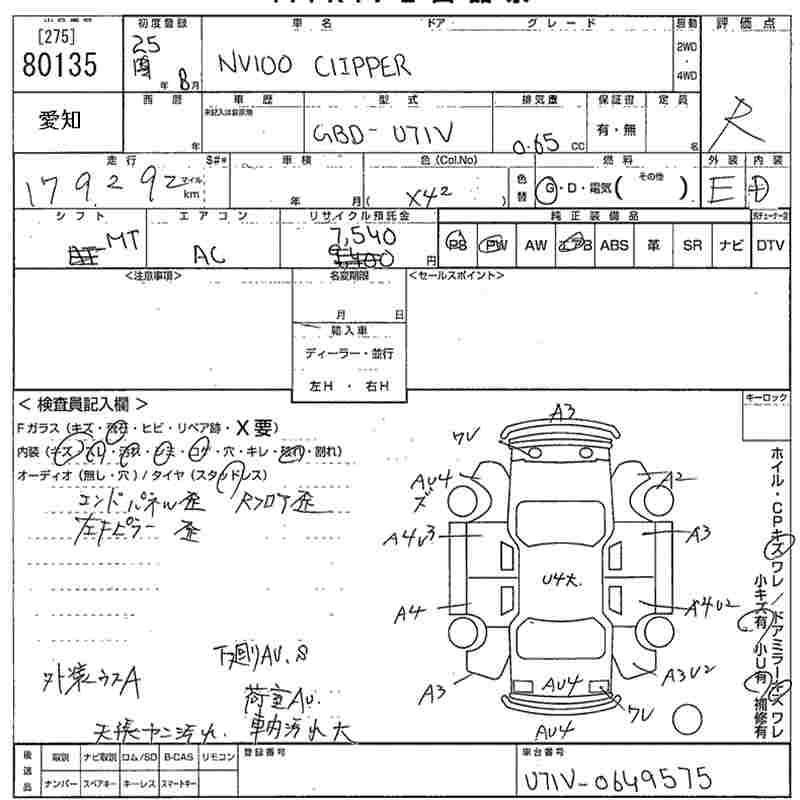 出品番号 初度登録 車名 ドア グレード 駆動 評価点
[275] 80135 25 年 8月 NV100 CLIPPER 2WD・4WD R
愛知 西暦 年 車歴 未記入は自家用 型式 GBD-U71V 排気量 0.65 CC 保証書 有・無 定員 名
走行 179292 マイル km S#* 車検 年 月 色(Col.No) ( X42 ) 色替 燃料 G・D・電気( その他 ) 外装 E 内装 D
シフト MT エアコン AC リサイクル預託金 7,540 円 純正装備品
PS PW AW エアB ABS 革 SR ナビ DTV
<注意事項> 名変期限 <セールスポイント>
月 日
輸入車
ディーラー・並行
左H ・ 右H
<検査員記入欄> キーロック
Fガラス(キズ・飛石・ヒビ・リペア跡・X要)
内装(キズ・スレ・汚れ・シミ・コゲ・穴・キレ・破れ・割れ)
オーディオ(無し・穴)/タイヤ(スタッドレス)
エンドパネル歪 Rフロア歪
左Fピラー 歪
下回りAU.S
外装ウスA
荷室AU.
天張ヤニ汚れ. 車内汚れ大
A3
ワレ
AU4 ズ A2
A4U3 A3
U4大.
A4 A4U2
A3 AU4 ワレ A3U2
AU4
ホイル・CPキズワレ/ドアミラーキズワレ
小キズ有/小U有/補修有
後送品 取説 ナビ取説 ロム/SD B-CAS リモコン 登録番号 車台番号
ナンバー スペアキー キーレス スマートキー U71V-0649575